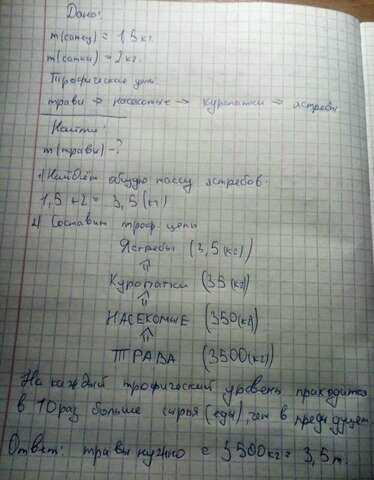 Дано:
m(самец) = 1,5 кг.
m(самки) = 2 кг.
Трофическая цепь:
травы → насекомые → куропатки → ястребы
Найти:
m(травы) - ?
1) Найдём общую массу ястребов:
1,5 + 2 = 3,5 (кг)
2) Составим троф. цепь
Ястребы (3,5 (кг))
⇑
Куропатки (35 (кг))
⇑
НАСЕКОМЫЕ (350 (кг))
⇑
ТРАВА (3500 (кг))
На каждый трофический уровень приходится
в 10 раз больше сырья (еды), чем в предыдущем
Ответ: травы нужно 3500 кг = 3,5 т.